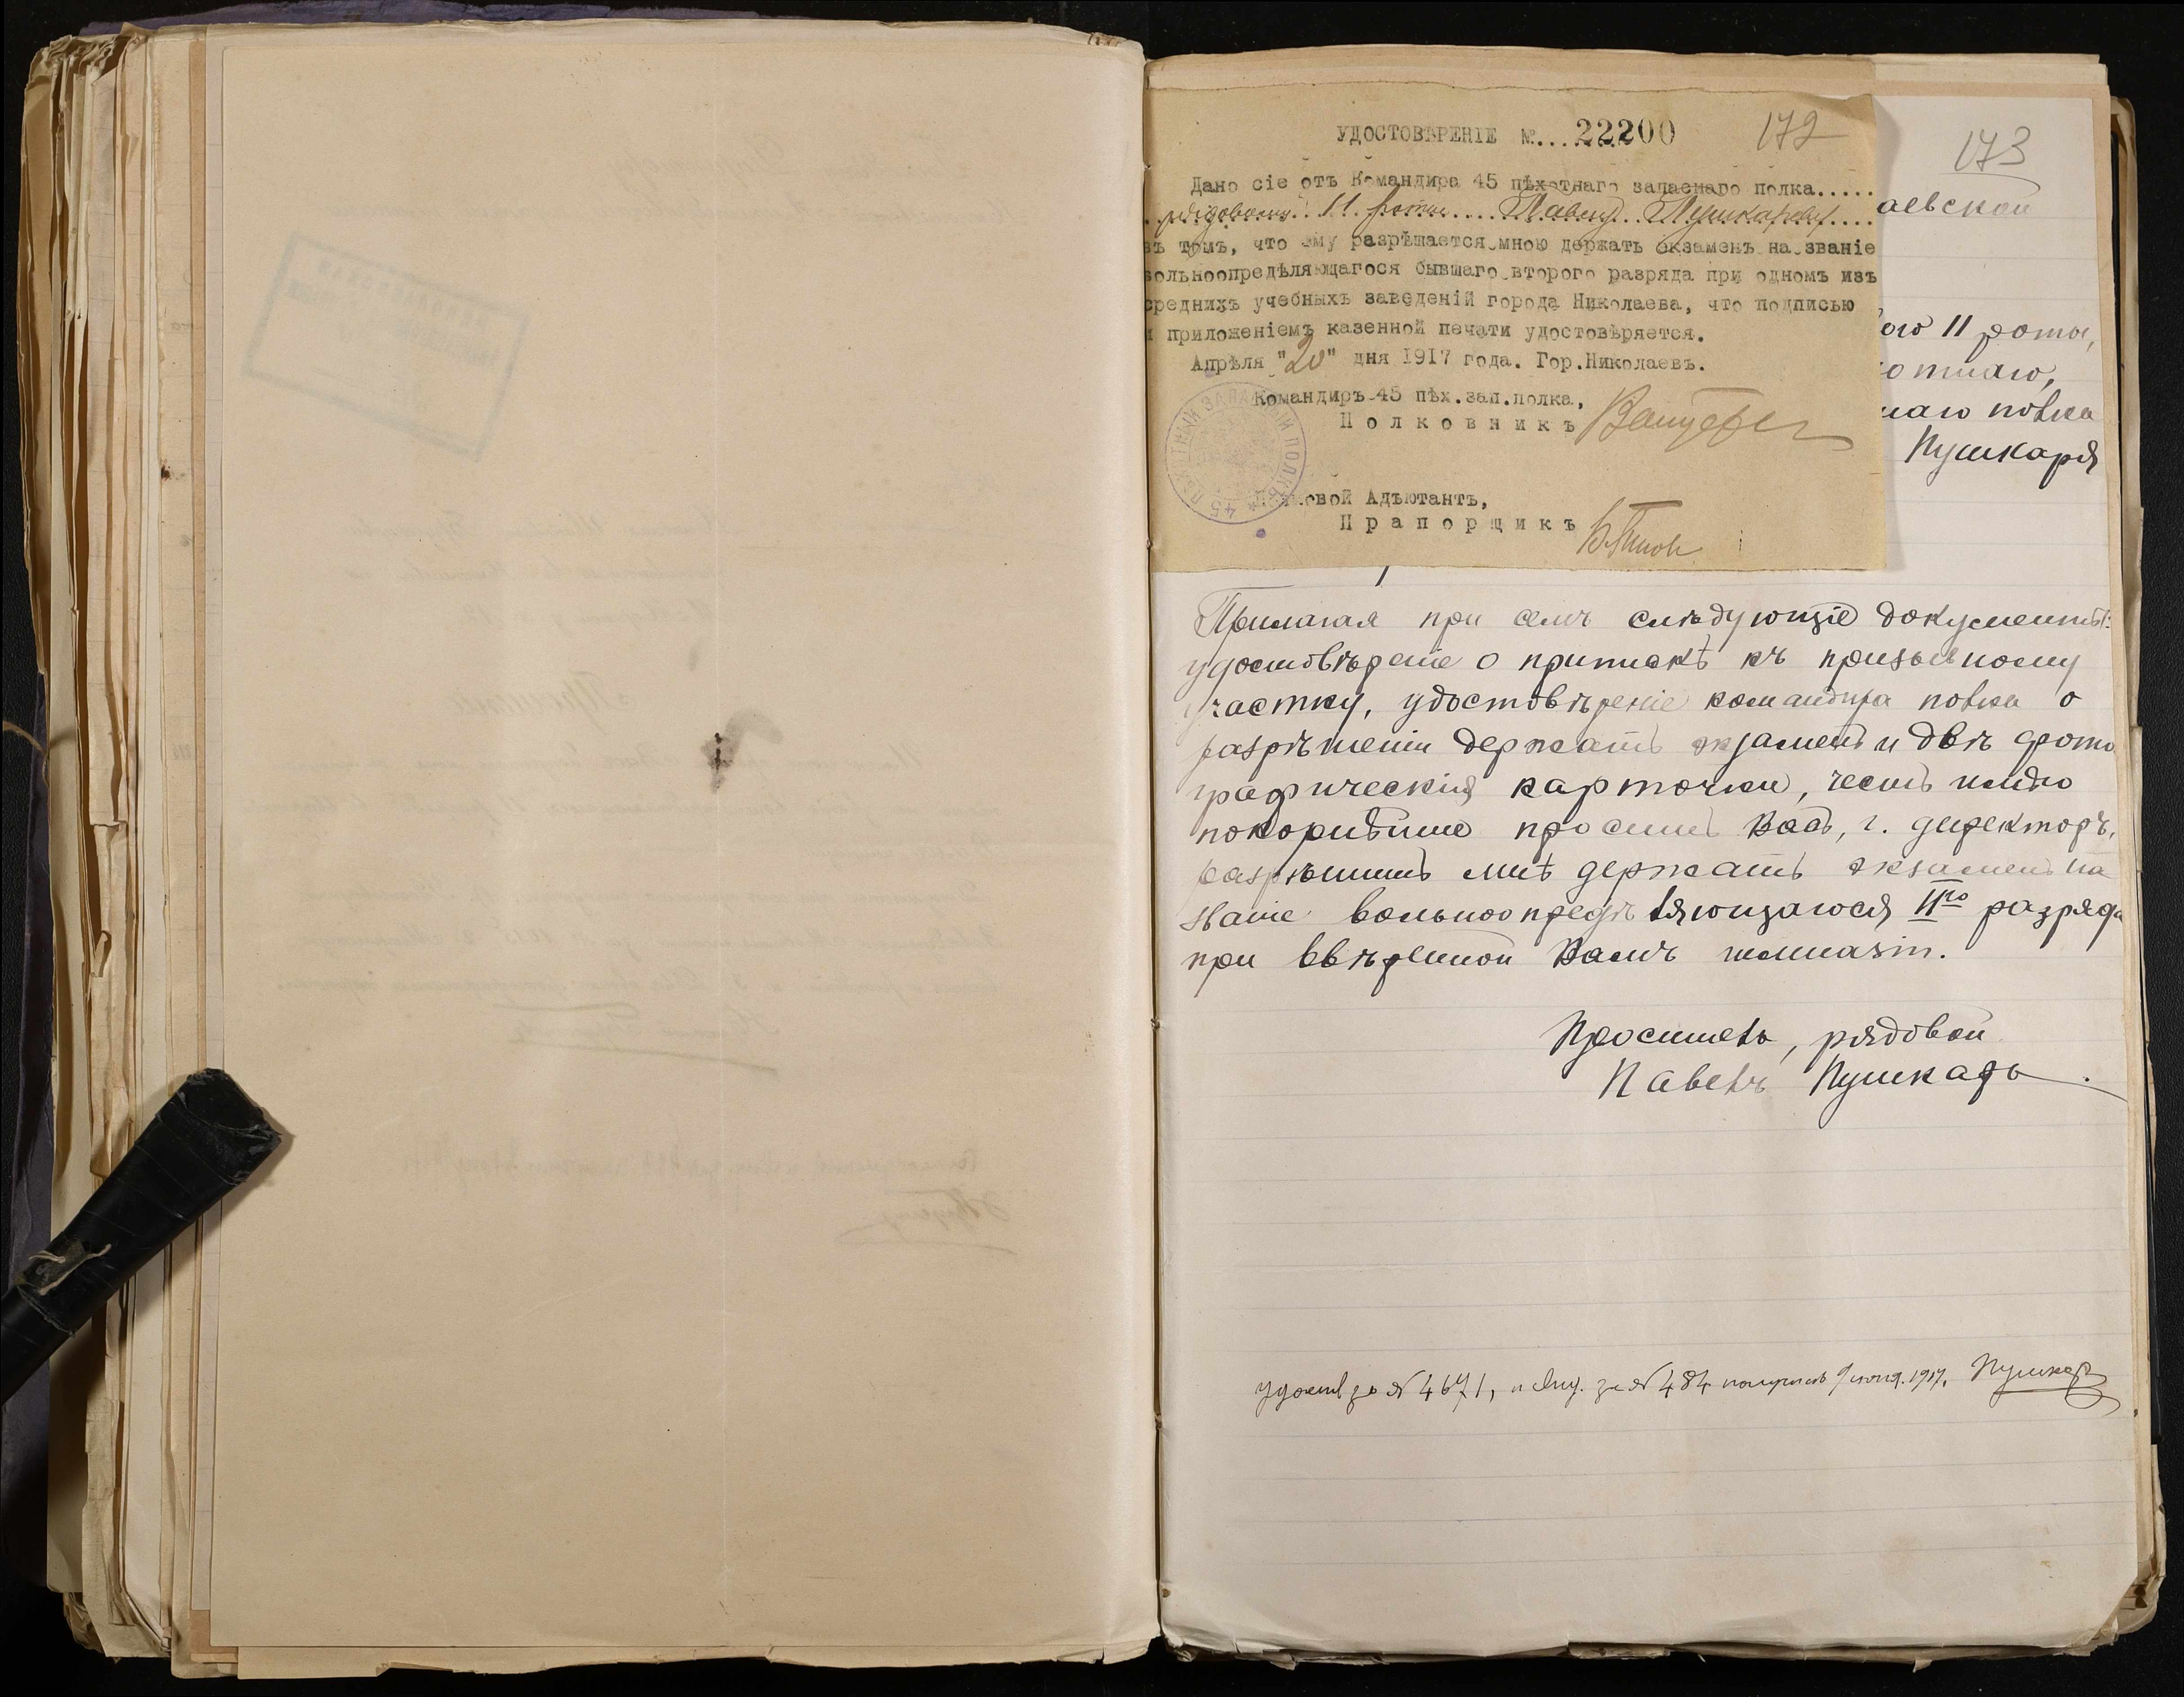 УДОСТОВѢРЕНІЕ №....22200
172
Дано сіе отъ Командира 45 пѣхотнаго запаснаго полка.....
рядовому 11 роты.... Павлу Пушкареву....
въ томъ, что ему разрѣшается мною держать экзаменъ на званіе
вольноопредѣляющагося бывшаго второго разряда при одномъ изъ
среднихъ учебныхъ заведеній города Николаева, что подписью
и приложеніемъ казенной печати удостовѣряется.
Апрѣля "20" дня 1917 года. Гор.Николаевъ.
Командиръ 45 пѣх.зап.полка,
Полковникъ
овой Адъютантъ,
Прапорщикъ
45 ПѢХОТНЫЙ ЗАПАСНЫЙ ПОЛКЪ
173
аевской
ого 11 роты,
отнаго,
наго полка
Пушкаря
Прилагая при семъ слѣдующіе документы:
удостовѣреніе о припискѣ къ призывному
участку, удостовѣреніе командира полка о
разрѣшеніи держать экзаменъ и двѣ фото
графическія карточки, честь имѣю
покорнѣйше просить Васъ, г. директоръ,
разрѣшить мнѣ держать экзаменъ на
званіе вольноопредѣляющагося IIго разряда
при ввѣренной Вамъ гимназіи.
Проситель, рядовой
Павелъ Пушкарь.
удостов за № 4671, и за № 484 получилъ 9 іюня 1917. Пушкарь